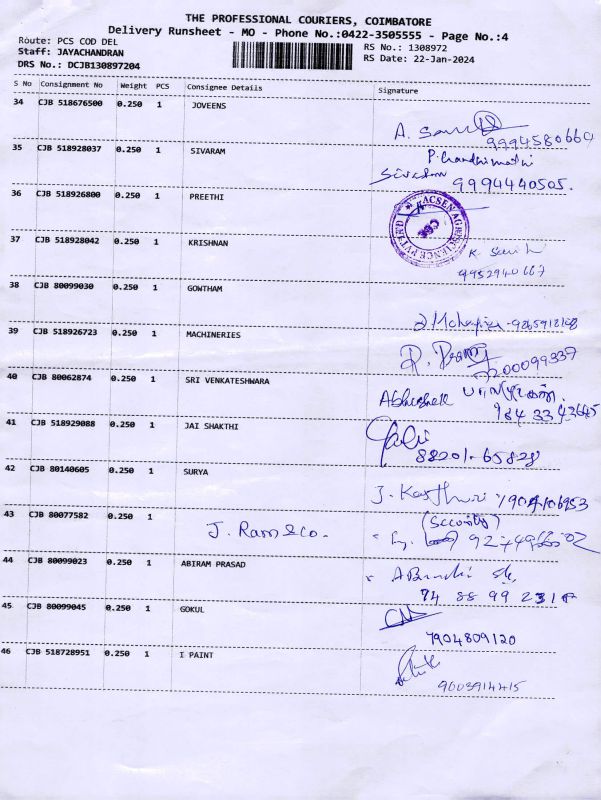 THE PROFESSIONAL COURIERS, COIMBATORE
Delivery Runsheet - MO - Phone No.:0422-3505555 - Page No.:4
Route: PCS COD DEL
RS No.: 1308972
Staff: JAYACHANDRAN
RS Date: 22-Jan-2024
DRS No.: DCJB130897204
S No Consignment No Weight PCS Consignee Details Signature
34 CJB 518676500 0.250 1 JOVEENS
A.
9994580660
35 CJB 518928037 0.250 1 SIVARAM
Sivaram 9994440505.
36 CJB 518926800 0.250 1 PREETHI
37 CJB 518928042 0.250 1 KRISHNAN
9952940667
38 CJB 80099030 0.250 1 GOWTHAM
39 CJB 518926723 0.250 1 MACHINERIES
7200099339
40 CJB 80062874 0.250 1 SRI VENKATESHWARA
Abhishek
9843343645
41 CJB 518929088 0.250 1 JAI SHAKTHI
88201-65828
42 CJB 80140605 0.250 1 SURYA
J. Kasthuri
43 CJB 80077582 0.250 1 J. Ram & co.
(Security)
44 CJB 80099023 0.250 1 ABIRAM PRASAD
74 88 99 2318
45 CJB 80099045 0.250 1 GOKUL
7904809120
46 CJB 518728951 0.250 1 I PAINT
9003914415